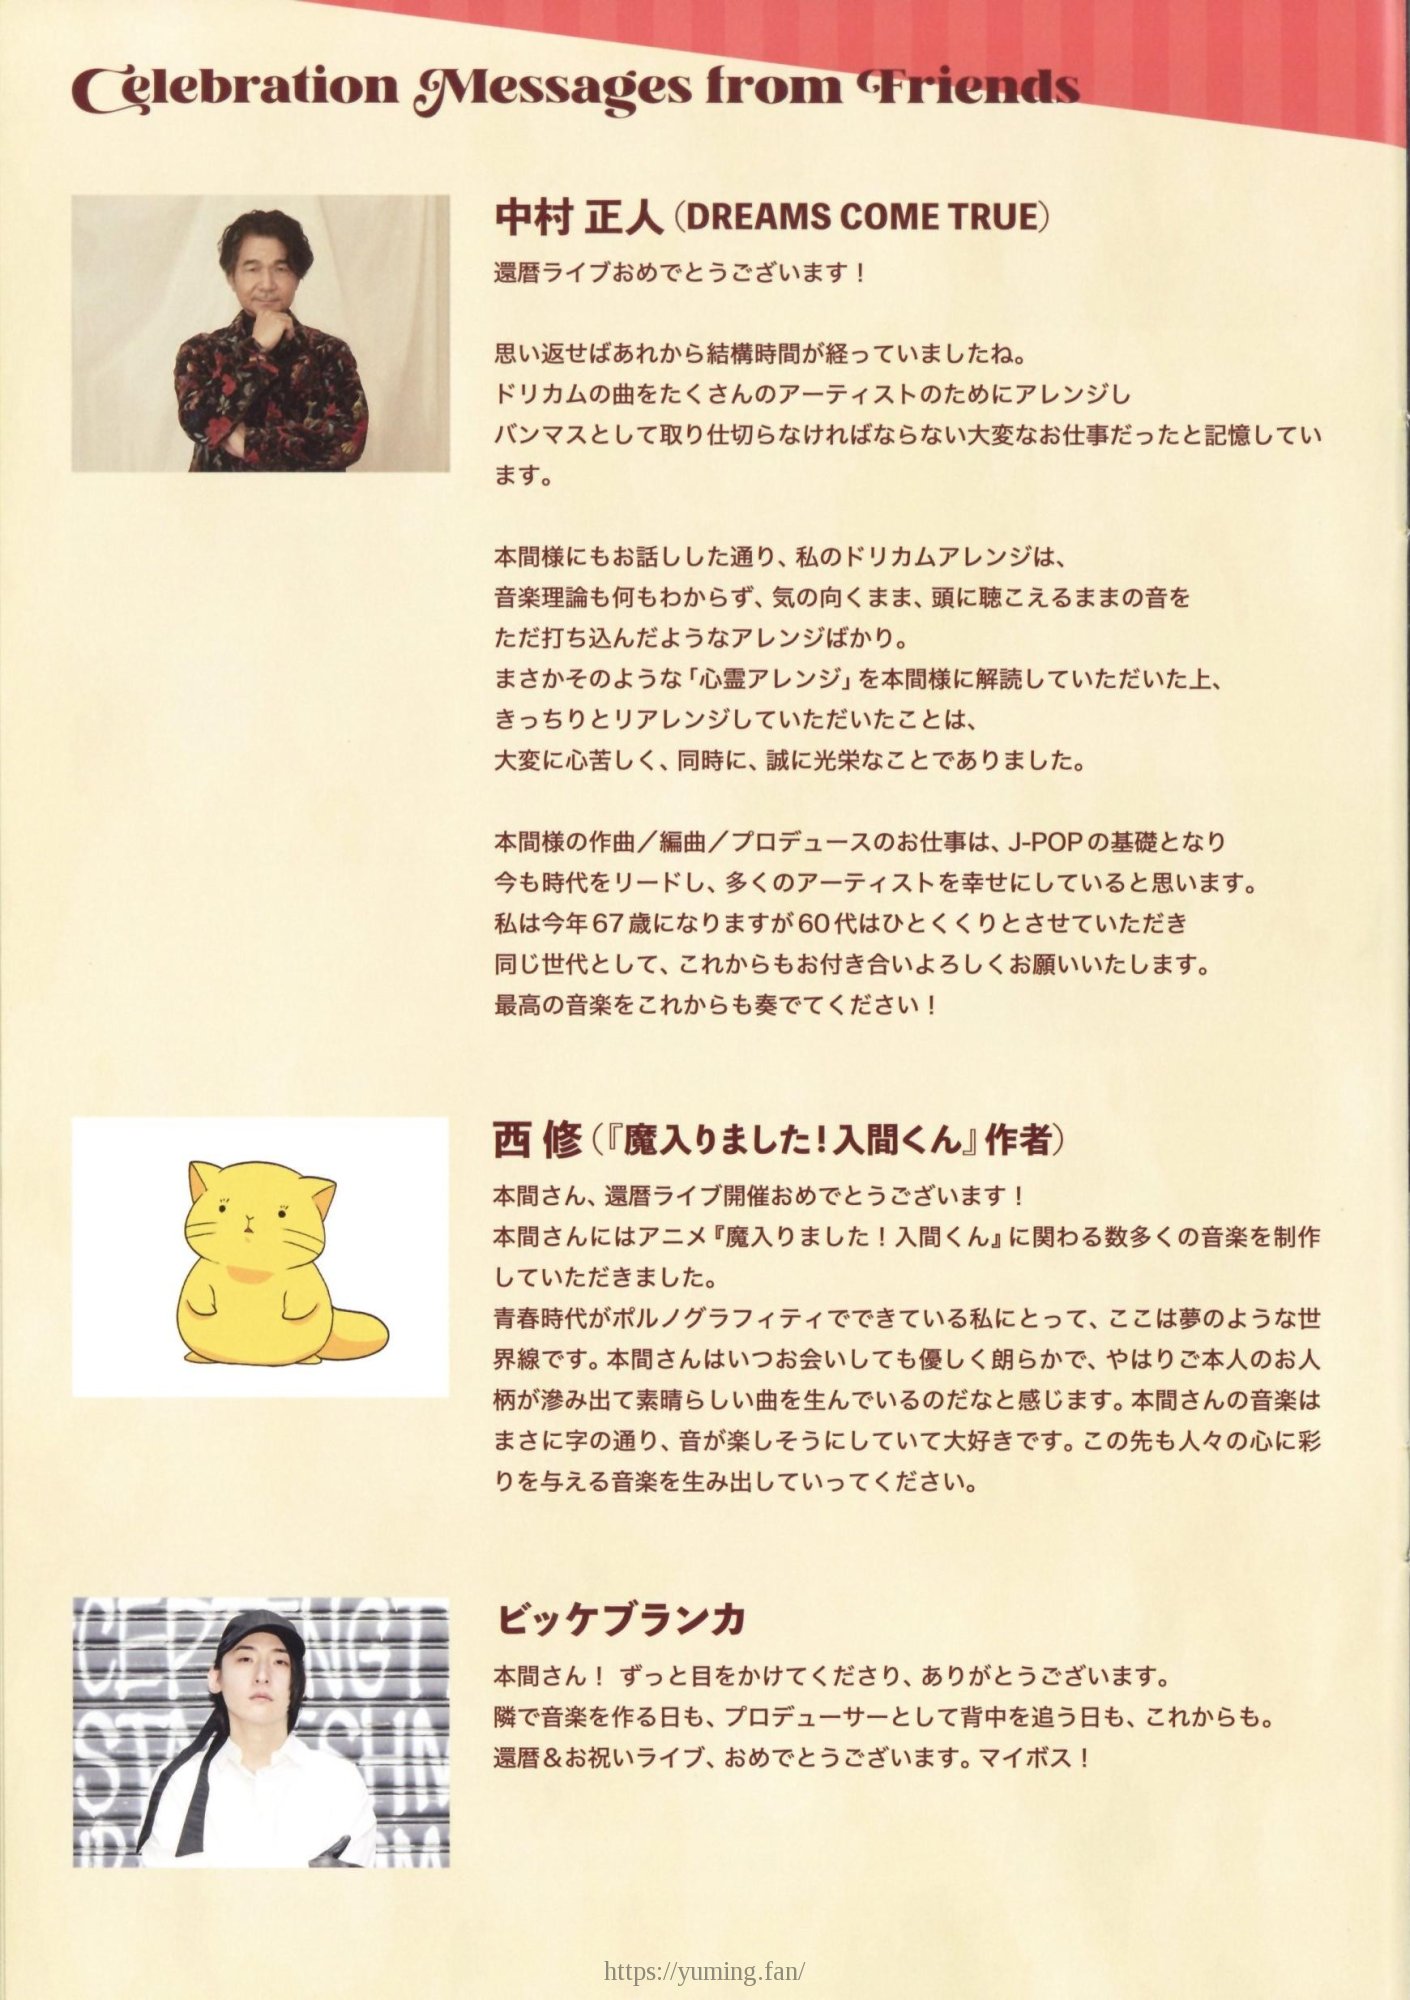 Celebration Messages from Friends
中村 正人（DREAMS COME TRUE）
還暦ライブおめでとうございます！
思い返せばあれから結構時間が経っていましたね。
ドリカムの曲をたくさんのアーティストのためにアレンジし
バンマスとして取り仕切らなければならない大変なお仕事だったと記憶してい
ます。
本間様にもお話しした通り、私のドリカムアレンジは、
音楽理論も何もわからず、気の向くまま、頭に聴こえるままの音を
ただ打ち込んだようなアレンジばかり。
まさかそのような「心霊アレンジ」を本間様に解読していただいた上、
きっちりとリアレンジしていただいたことは、
大変に心苦しく、同時に、誠に光栄なことでありました。
本間様の作曲／編曲／プロデュースのお仕事は、J-POPの基礎となり
今も時代をリードし、多くのアーティストを幸せにしていると思います。
私は今年67歳になりますが60代はひとくくりとさせていただき
同じ世代として、これからもお付き合いよろしくお願いいたします。
最高の音楽をこれからも奏でてください！
西 修（『魔入りました！入間くん』作者）
本間さん、還暦ライブ開催おめでとうございます！
本間さんにはアニメ『魔入りました！入間くん』に関わる数多くの音楽を制作
していただきました。
青春時代がポルノグラフィティでできている私にとって、ここは夢のような世
界線です。本間さんはいつお会いしても優しく朗らかで、やはりご本人のお人
柄が滲み出て素晴らしい曲を生んでいるのだなと感じます。本間さんの音楽は
まさに字の通り、音が楽しそうにしていて大好きです。この先も人々の心に彩
りを与える音楽を生み出していってください。
ビッケブランカ
本間さん！ ずっと目をかけてくださり、ありがとうございます。
隣で音楽を作る日も、プロデューサーとして背中を追う日も、これからも。
還暦＆お祝いライブ、おめでとうございます。マイボス！
https://yuming.fan/